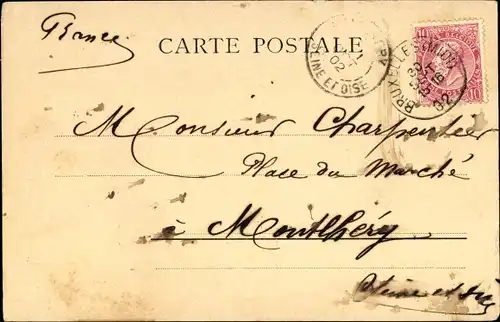 France
CARTE POSTALE
SEINE ET OISE
02
BRUXELLES (MIDI)
10 10
Monsieur Charpentier
Place du Marché
à Montlhéry
Seine et Oise